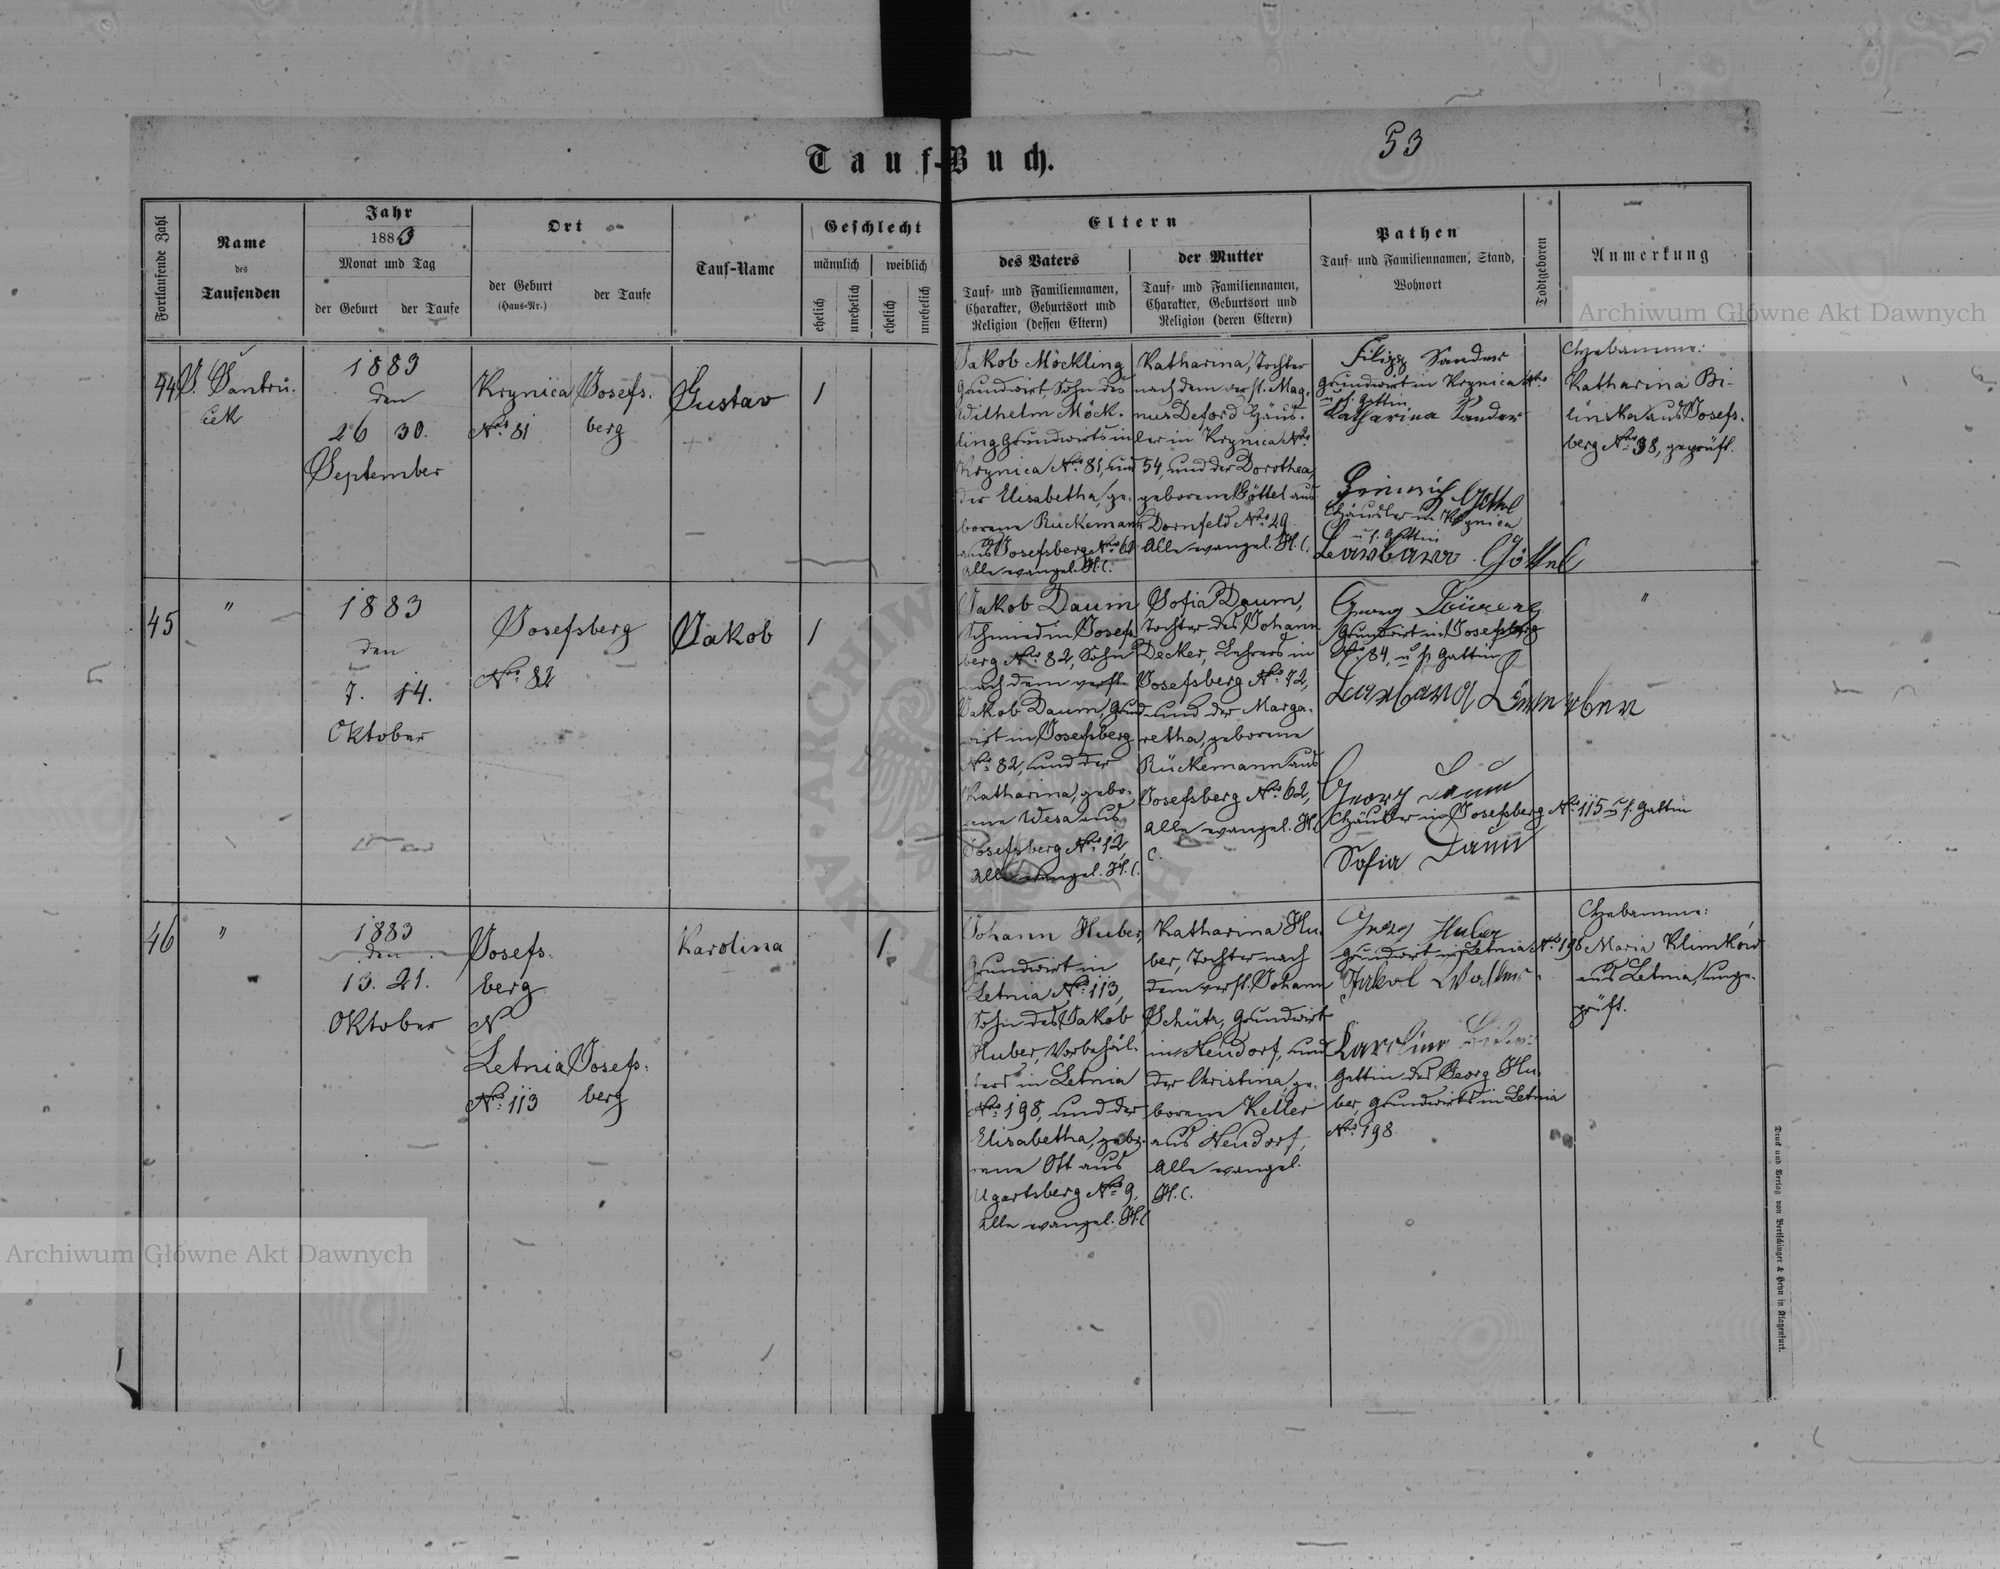 Tauf-Buch.
53
Fortlaufende Zahl
Name
des
Taufenden
Jahr
1883
Monat und Tag
der Geburt
der Taufe
Ort
der Geburt
(Haus-Nr.)
der Taufe
Tauf-Name
Geschlecht
männlich
weiblich
ehelich
unehelich
ehelich
unehelich
Eltern
des Vaters
Tauf- und Familiennamen,
Charakter, Geburtsort und
Religion (dessen Eltern)
der Mutter
Tauf- und Familiennamen,
Charakter, Geburtsort und
Religion (deren Eltern)
Pathen
Tauf- und Familiennamen, Stand,
Wohnort
Todtgeboren
Anmerkung
Archiwum Główne Akt Dawnych
44
J. Jantrů-
ček
1883
den
26 30.
September
Krynica
Nro 81
Josefs-
berg
Gustav
1
Jakob Möckling
Grundwirt, Sohn des
Wilhelm Möck-
ling Grundwirts in
Krynica Nro 81, und
der Elisabetha, ge-
borene Rückemann
aus Josefsberg Nro 61
Alle evangel. H.C.
Katharina, Tochter
nach dem verst. Mag-
nus Deford Häus-
ler in Krynica Nro
54, und der Dorothea,
geborene Göttel aus
Dornfeld Nro 29.
Alle evangel. H.C.
Filipp Sander
Grundwirt in Krynica Nro
u. s. Gattin
Katharina Sander
Heinrich Göttel
Häusler in Krynica
u. s. Gattin
Barbara Göttel
Hebamme:
Katharina Bi-
linska aus Josefs-
berg Nro 38, geprüft.
45
"
1883
den
7. 14.
Oktober
Josefsberg
Nro 82
Jakob
1
Jakob Daum
Schmied in Josefs-
berg Nro 82, Sohn
nach dem verst.
Jakob Daum, Grund-
wirt in Josefsberg
Nro 82, und der
Katharina, gebo-
rene Wesa aus
Josefsberg Nro 12
Alle evangel. H.C.
Sofia Daum,
Tochter des Johann
Decker, Lehrers in
Josefsberg Nro 72,
und der Marga-
retha, geborene
Rückemann aus
Josefsberg Nro 62,
Alle evangel. H.
C.
Georg
Grundwirt in Josefsberg
Nro 84, u. s. Gattin
Barbara
Georg Daum
Häusler in Josefsberg Nro 115 u. s. Gattin
Sofia Daum
"
46
"
1883
den
13. 21.
Oktober
Josefs-
berg
N
Letnia
Nro 113
Josefs-
berg
Karolina
1
Johann Huber,
Grundwirt in
Letnia Nro 113,
Sohn des Jakob
Huber, Vorbehäl-
ters in Letnia
Nro 198, und der
Elisabetha, gebo-
rene Ott aus
Ugartsberg Nro 9.
Alle evangel. H.C.
Katharina Hu-
ber, Tochter nach
dem verst. Johann
Schütz, Grundwirt
in Neudorf, und
der Christina, ge-
borene Keller
aus Neudorf,
Alle evangel.
H.C.
Georg Huber
Grundwirt in Letnia Nro 198
Jakob
Karolina
Gattin des Georg Hu-
ber, Grundwirts in Letnia
Nro 198.
Hebamme:
Maria Klimków
aus Letnia, unge-
prüft.
Archiwum Główne Akt Dawnych
Druck und Verlag von Bertschinger & Heyn in Klagenfurt.